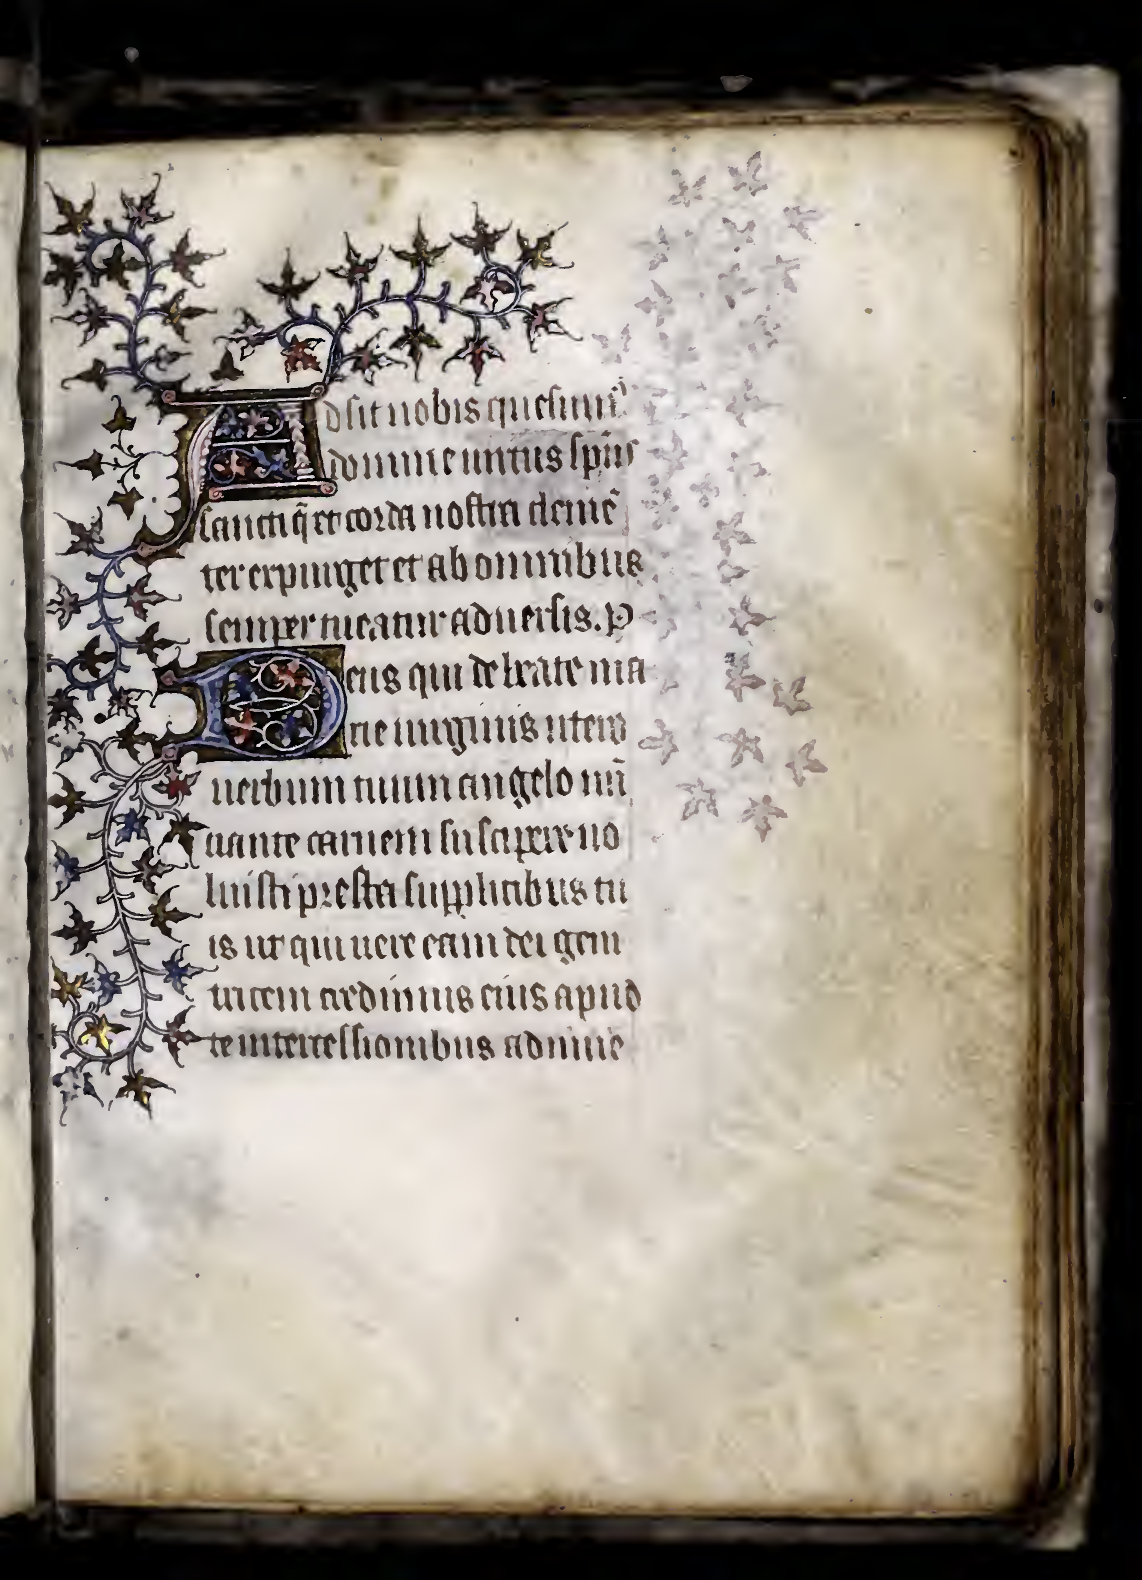 Adsit nobis quesum̃
domine uirtus sp̃us
sancti q̃ et corda nostra clemẽ
ter expurget et ab omnibus
semper tueatur aduersis. p
Deus qui de beate ma
rie uirginis utero
uerbum tuum angelo nũ
ciante carnem suscipere uo
luisti presta supplicibus tu
is ut qui uere eam dei geni
tricem credimus eius apud
te intercessionibus adiuue